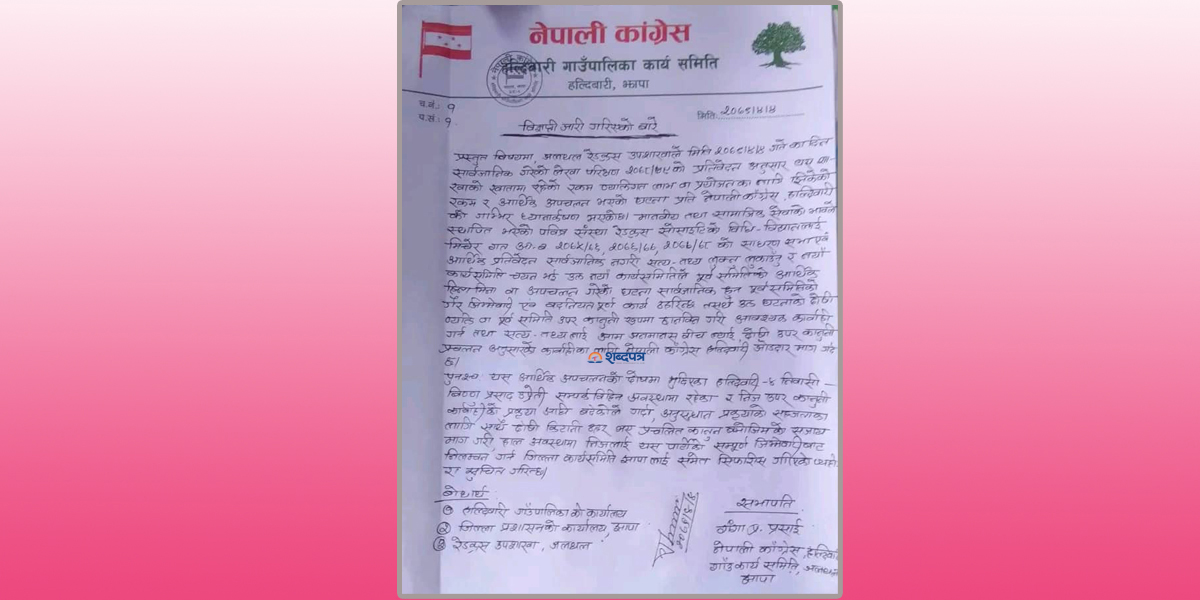 नेपाली कांग्रेस
हल्दिवारी गाउँपालिका कार्य समिति
हल्दिवारी, झापा
च.नं.: १
प.सं.: १
मिति: २०७९।४।४
विज्ञप्ती जारी गरिएको बारे
प्रस्तुत विषयमा जलथल रेडक्रस उपशाखाले मिति गते का दिन
सार्वजनिक गरेको लेखा परिक्षण को प्रतिवेदन अनुसार यस शा-
खाको खातामा रहेको रकम व्यक्तिगत लाभ वा प्रयोजनका लागि झिकेको
रकम र आर्थिक अपचलन भएको घटना प्रति नेपाली कांग्रेस, हल्दिवारी
को गम्भिर ध्यानाकर्षण भएकोछ। मानवीय तथा सामाजिक सेवाको भावले
स्थापित भएको पवित्र संस्था रेडक्रस सोसाइटिको विधि-विधानलाई
मिचेर गत आ.व को साधारण सभा एवं
आर्थिक प्रतिवेदन सार्वजनिक नगरी सत्य-तथ्य लुकाउनु र नयाँ
कार्यसमिति चयन भई उक्त नयाँ कार्यसमितिले पूर्व समितिको आर्थिक
वा अपचलन गरेको घटना सार्वजनिक हुनु पूर्व समितिको
गैर जिम्मेवारी एवं बदनियतपूर्ण कार्य ठहरिन्छ। तसर्थ उक्त घटनाको दोषी
व्यक्ति वा पूर्व समिति उपर कानुनी रुपमा गरी आवश्यक कार्वाही
गर्न तथा सत्य-तथ्यलाई आम जनमानस बीच ल्याई, दोषी उपर कानुनी
प्रचलन अनुसारको कार्वाहीका लागि नेपाली कांग्रेस हल्दिवारी जोडदार माग गर्द
छ।
शब्दपत्र
पुनश्च: यस आर्थिक अपचलनको दोषमा मुछिएका हल्दिवारी-४ निवासी
विष्णु प्रसाद उप्रेती सम्पर्क विहिन अवस्थामा रहेका र निज उपर कानुनी
कार्वाहीको प्रकृया अघि बढेकोले गर्दा, अनुसन्धान प्रकृयाको सहजताका
लागि साथै दोषी किटानी ठहर भए प्रचलित कानुन बमोजिमको सजाय
माग गरी हाल अवस्थामा निजलाई यस पार्टीको सम्पूर्ण जिम्मेवारीबाट
निलम्बन गर्न जिल्ला कार्यसमिति झापा लाई समेत सिफारिस गरिएको व्यहो
रा सुचित गरिन्छ।
बोधार्थ
① हल्दिवारी गाउँपालिकाको कार्यालय
② जिल्ला प्रशासनको कार्यालय, झापा
③ रेडक्रस उपशाखा, जलथल
सभापति
गंगा प्र. प्रसाई
नेपाली कांग्रेस, हल्दिवा
गाउँ कार्य समिति, जलथ
झापा